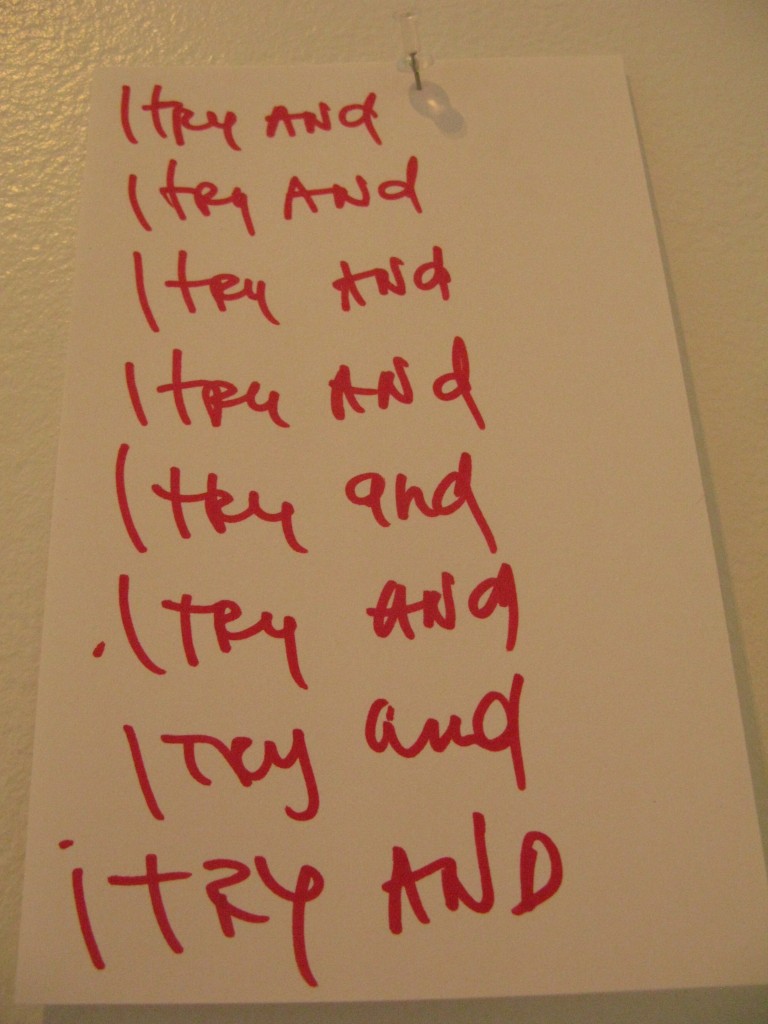 I tRy ANd
I tRy ANd
I tRy ANd
I tRy ANd
I tRy and
I tRy ANd
I TRy and
i tRy AND